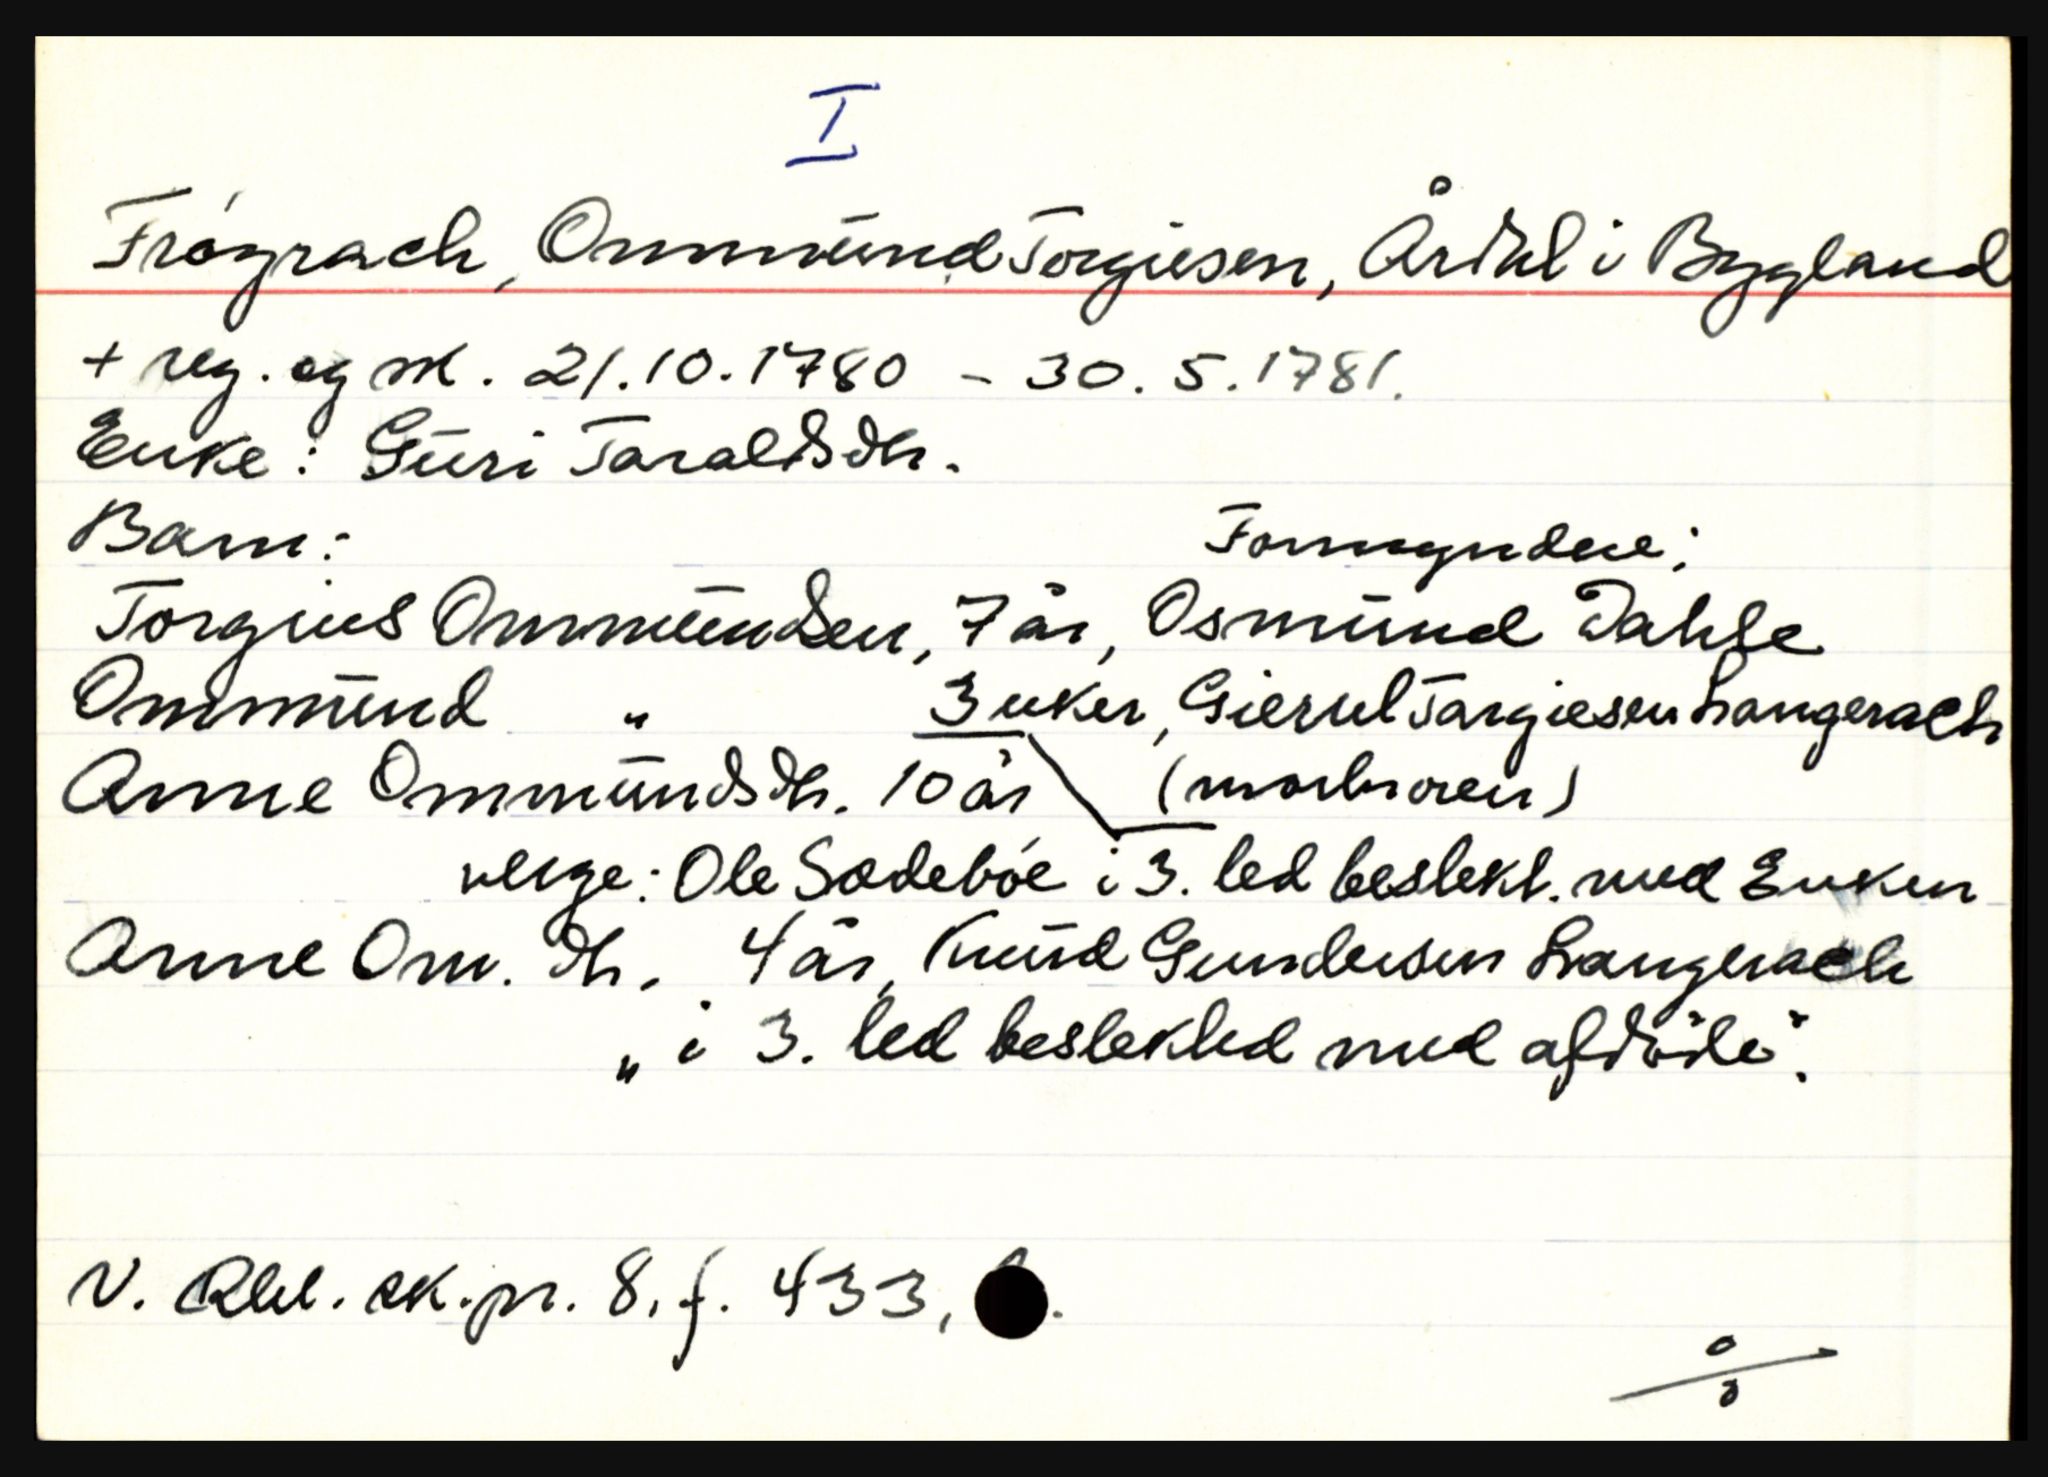 I
Frøyrach, Ommund Torgiesen, Årdal i Bygland
+ reg. og sk. 21.10.1780 - 30.5.1781.
Enke: Guri Taraldsdtr.
Barn: Formyndere:
Torgius Ommundsen, 7 år, Osmund Dahle
Ommund " 3 uker, Gierul Targiesen Langerach
Anne Ommundsdtr. 10 år (morbroren)
verge: Ole Sodebøe i 3. led beslekt. med Enken
Anne Om. dtr. 4 år, Knud Gundersen Langerach
„i 3. led beslekted med afdøde".
V. Rbl. sk.pr. 8, f. 433,